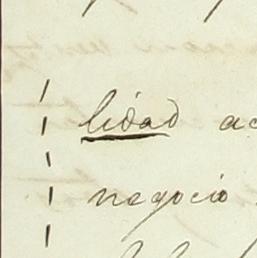 lidad ac
negocio